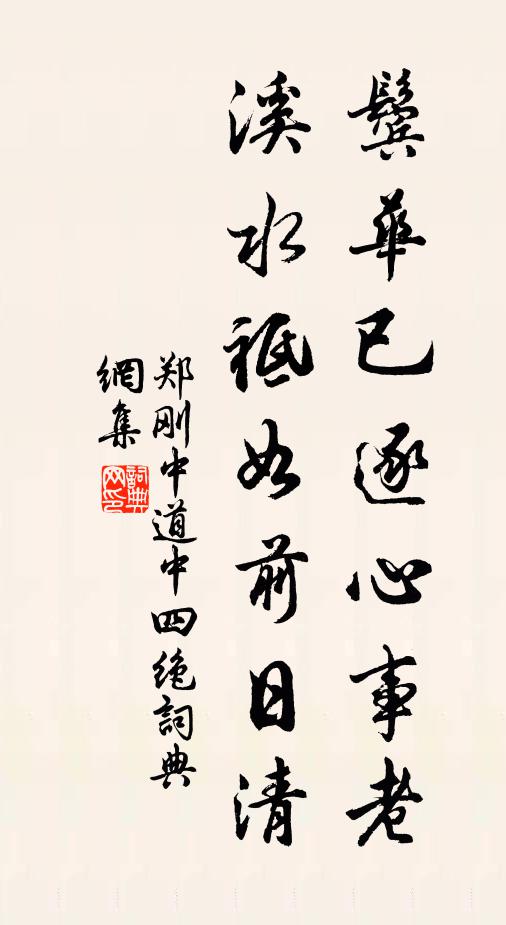 鬓华已逐心事老
溪水祗如前日清
郑刚中道中四绝詞典
網集
詞典網印